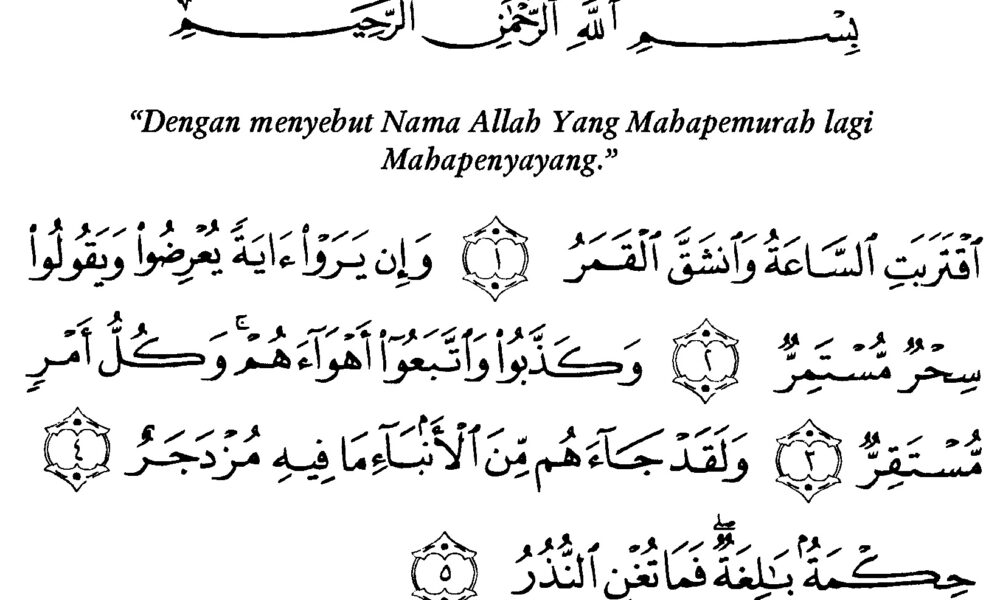 بِسْمِ ٱللَّهِ ٱلرَّحْمَٰنِ ٱلرَّحِيمِ
“Dengan menyebut Nama Allah Yang Mahapemurah lagi
Mahapenyayang.”
ٱقْتَرَبَتِ ٱلسَّاعَةُ وَٱنشَقَّ ٱلْقَمَرُ ١ وَإِن يَرَوْا۟ ءَايَةً يُعْرِضُوا۟ وَيَقُولُوا۟
سِحْرٌ مُّسْتَمِرٌّ ٢ وَكَذَّبُوا۟ وَٱتَّبَعُوٓا۟ أَهْوَآءَهُمْ ۚ وَكُلُّ أَمْرٍ
مُّسْتَقِرٌّ ٣ وَلَقَدْ جَآءَهُم مِّنَ ٱلْأَنۢبَآءِ مَا فِيهِ مُزْدَجَرٌ ٤
حِكْمَةٌۢ بَٰلِغَةٌ ۖ فَمَا تُغْنِ ٱلنُّذُرُ ٥